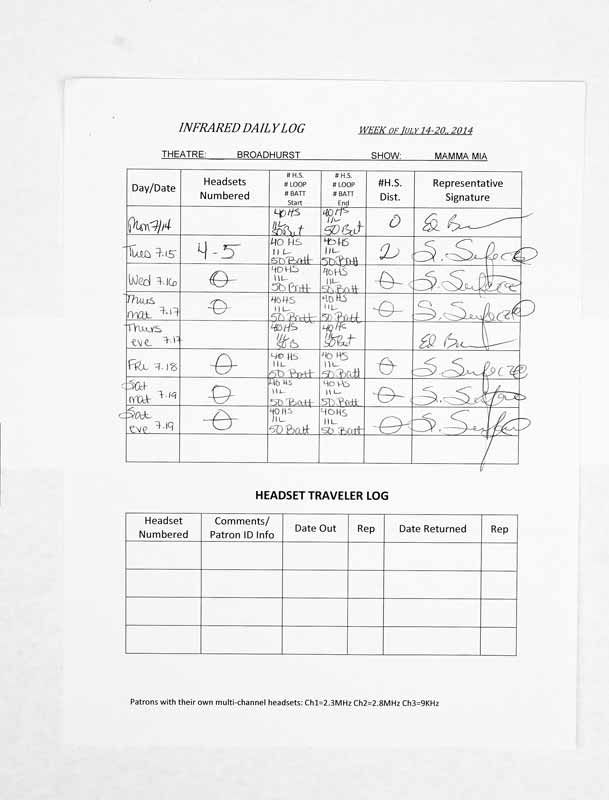 INFRARED DAILY LOG WEEK OF JULY 14-20, 2014
THEATRE: BROADHURST SHOW: MAMMA MIA
Day/Date Headsets Numbered # H.S. # LOOP # BATT Start # H.S. # LOOP # BATT End #H.S. Dist. Representative Signature
Mon 7/14 40 HS 11L 50 Bat 40 HS 11L 50 Bat 0
Tues 7.15 4-5 40 HS 11L 50 Batt 40 HS 11L 50 Batt 2
Wed 7.16 0 40 HS 11L 50 Batt 40 HS 11L 50 Batt 0
Thurs mat 7.17 0 40 HS 11L 50 Batt 40 HS 11L 50 Batt 0
Thurs eve 7.17 40 HS 11L 50 B 40 HS 11L 50 Bat
FRI 7.18 0 40 HS 11L 50 Batt 40 HS 11L 50 Batt 0
Sat mat 7.19 0 40 HS 11L 50 Batt 40 HS 11L 50 Batt 0
Sat eve 7.19 0 40 HS 11L 50 Batt 40 HS 11L 50 Batt 0
HEADSET TRAVELER LOG
Headset Numbered Comments/ Patron ID Info Date Out Rep Date Returned Rep
Patrons with their own multi-channel headsets: Ch1=2.3MHz Ch2=2.8MHz Ch3=9KHz